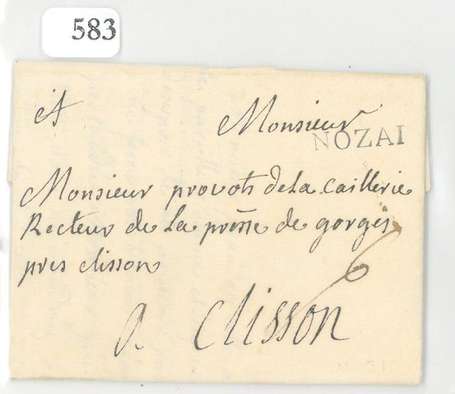 583
A Monsieur
NOZAI
Monsieur provots de la caillerie
Recteur de La de gorges
pres clisson
6
a clisson